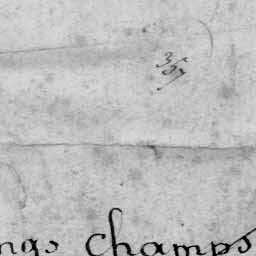 357
ngs champs